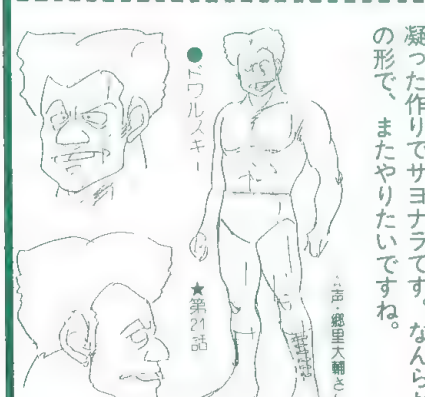 凝った作りでサヨナラです。なんらか
の形で、またやりたいですね。
声・郷里大輔さん
●ドワルスキー
★第21話